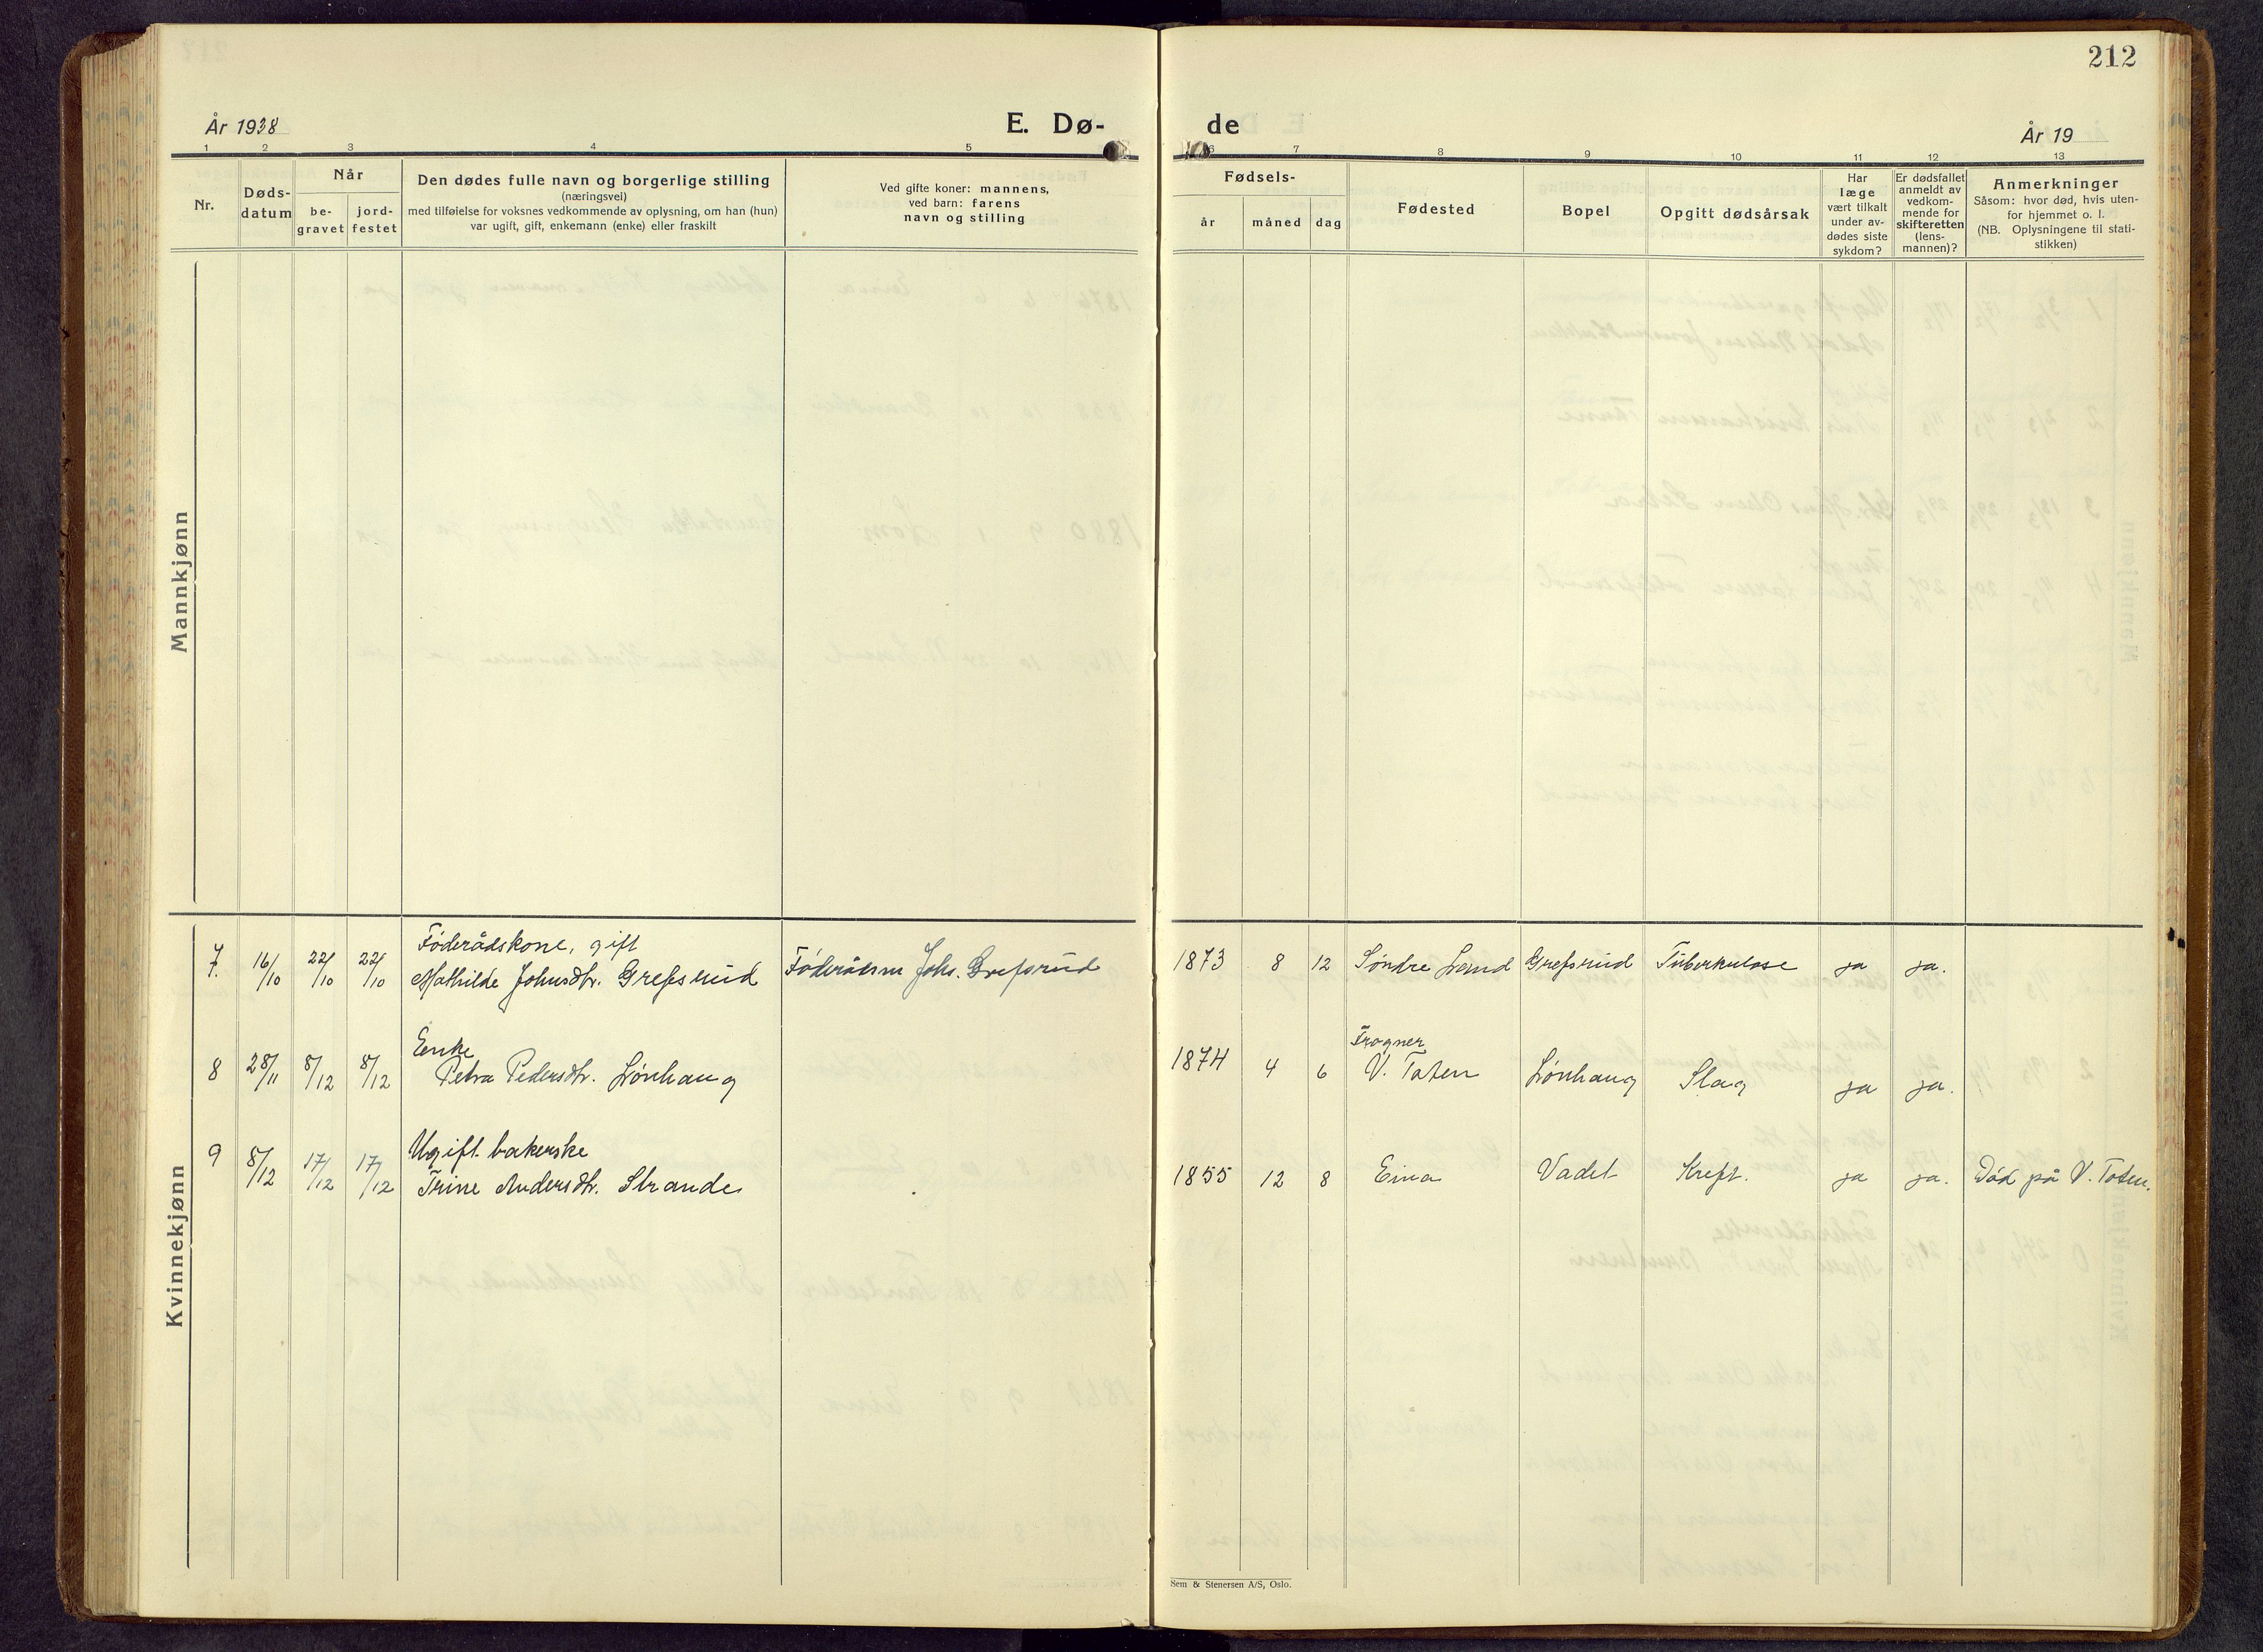 212
År 1938
E. Dø-
de
År 19
1 2 3 4 5
6 7 8 9 10 11 12 13
Nr.
Døds-
datum
Når
be-
gravet
jord-
festet
Den dødes fulle navn og borgerlige stilling
(næringsvei)
med tilføielse for voksnes vedkommende av oplysning, om han (hun)
var ugift, gift, enkemann (enke) eller fraskilt
Ved gifte koner: mannens,
ved barn: farens
navn og stilling
Fødsels-
år
måned
dag
Fødested
Bopel
Opgitt dødsårsak
Har
læge
vært tilkalt
under av-
dødes siste
sykdom?
Er dødsfallet
anmeldt av
vedkom-
mende for
skifteretten
(lens-
mannen)?
Anmerkninger
Såsom: hvor død, hvis uten-
for hjemmet o. l.
(NB. Oplysningene til stati-
stikken)
Mannkjønn
Kvinnekjønn
Føderådskone, gift
7. 16/10 22/10 22/10 Mathilde Johnsdtr. Grefsrud Føderådsm Johs. Grefsrud 1873 8 12 Søndre Land Grefsrud Tuberkulose ja ja.
Enke Frogner
8 28/11 8/12 8/12 Petra Pedersdtr. Lønhaug 1874 4 6 V. Toten Lønhaug Slag ja ja.
Ugift bakerske
9 8/12 17/12 17/12 Trine Andersdtr. Strande 1855 12 8 Eina Vadet Kreft. ja ja. Død på V. Toten.
Sem & Stenersen A/S, Oslo.